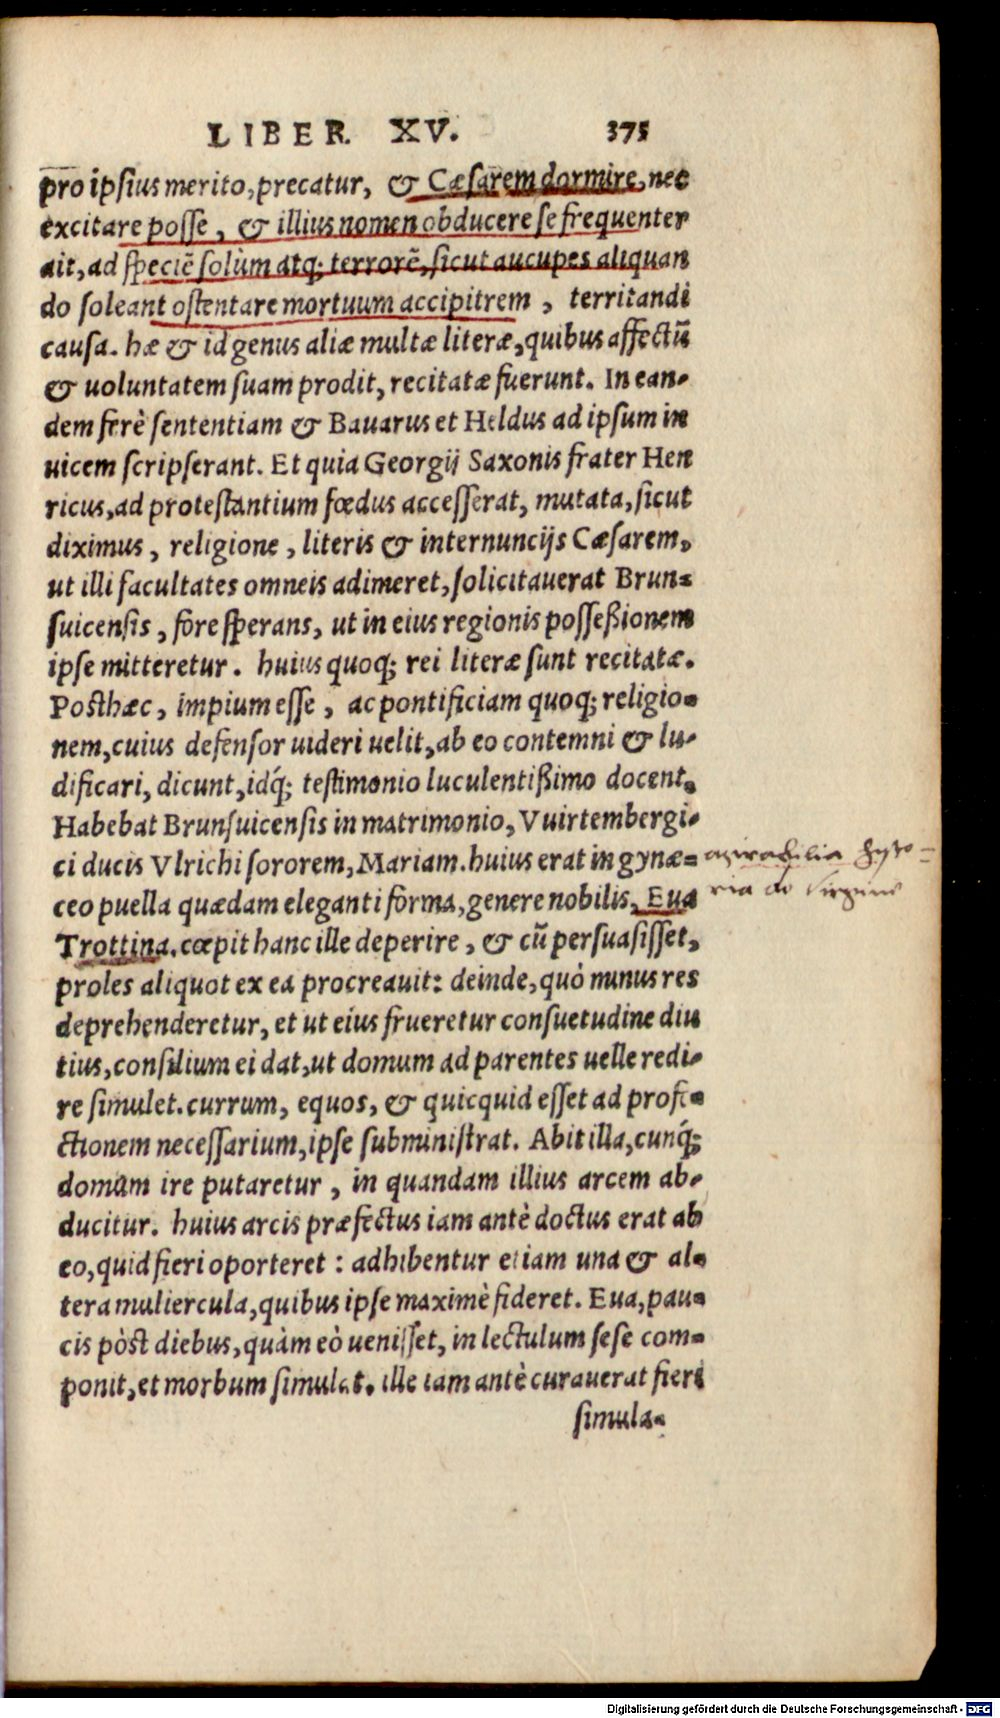 LIBER XV. 375
pro ipsius merito, precatur, & Cæsarem dormire, nec
excitare posse, & illius nomen obducere se frequenter
ait, ad speciē solùm atq; terrorē, sicut aucupes aliquan
do soleant ostentare mortuum accipitrem, territandi
causa. hæ & id genus aliæ multæ literæ, quibus affectū
& uoluntatem suam prodit, recitatæ fuerunt. In ean-
dem ferè sententiam & Bauarus et Heldus ad ipsum in
uicem scripserant. Et quia Georgij Saxonis frater Hen
ricus, ad protestantium fœdus accesserat, mutata, sicut
diximus, religione, literis & internuncijs Cæsarem,
ut illi facultates omneis adimeret, solicitauerat Brun-
suicensis, fore sperans, ut in eius regionis posseßionem
ipse mitteretur. huius quoq; rei literæ sunt recitatæ.
Posthæc, impium esse, ac pontificiam quoq; religio-
nem, cuius defensor uideri uelit, ab eo contemni & lu-
dificari, dicunt, idq́; testimonio luculentißimo docent.
Habebat Brunsuicensis in matrimonio, Vuirtembergi-
ci ducis Vlrichi sororem, Mariam. huius erat in gynæ-
ceo puella quædam eleganti forma, genere nobilis, Eua
Trottina. cœpit hanc ille deperire, & cū persuasisset,
proles aliquot ex ea procreauit: deinde, quò minus res
deprehenderetur, et ut eius frueretur consuetudine diu
tius, consilium ei dat, ut domum ad parentes uelle redi-
re simulet. currum, equos, & quicquid esset ad profe-
ctionem necessarium, ipse subministrat. Abit illa, cunq́;
domum ire putaretur, in quandam illius arcem ab-
ducitur. huius arcis præfectus iam antè doctus erat ab
eo, quid fieri oporteret: adhibentur etiam una & al-
tera muliercula, quibus ipse maximè fideret. Eua, pau-
cis pòst diebus, quàm eò uenisset, in lectulum sese com-
ponit, et morbum simulat. ille iam antè curauerat fieri
simula-
mirabilis hysto-
ria de Virgine
Digitalisierung gefördert durch die Deutsche Forschungsgemeinschaft - DFG